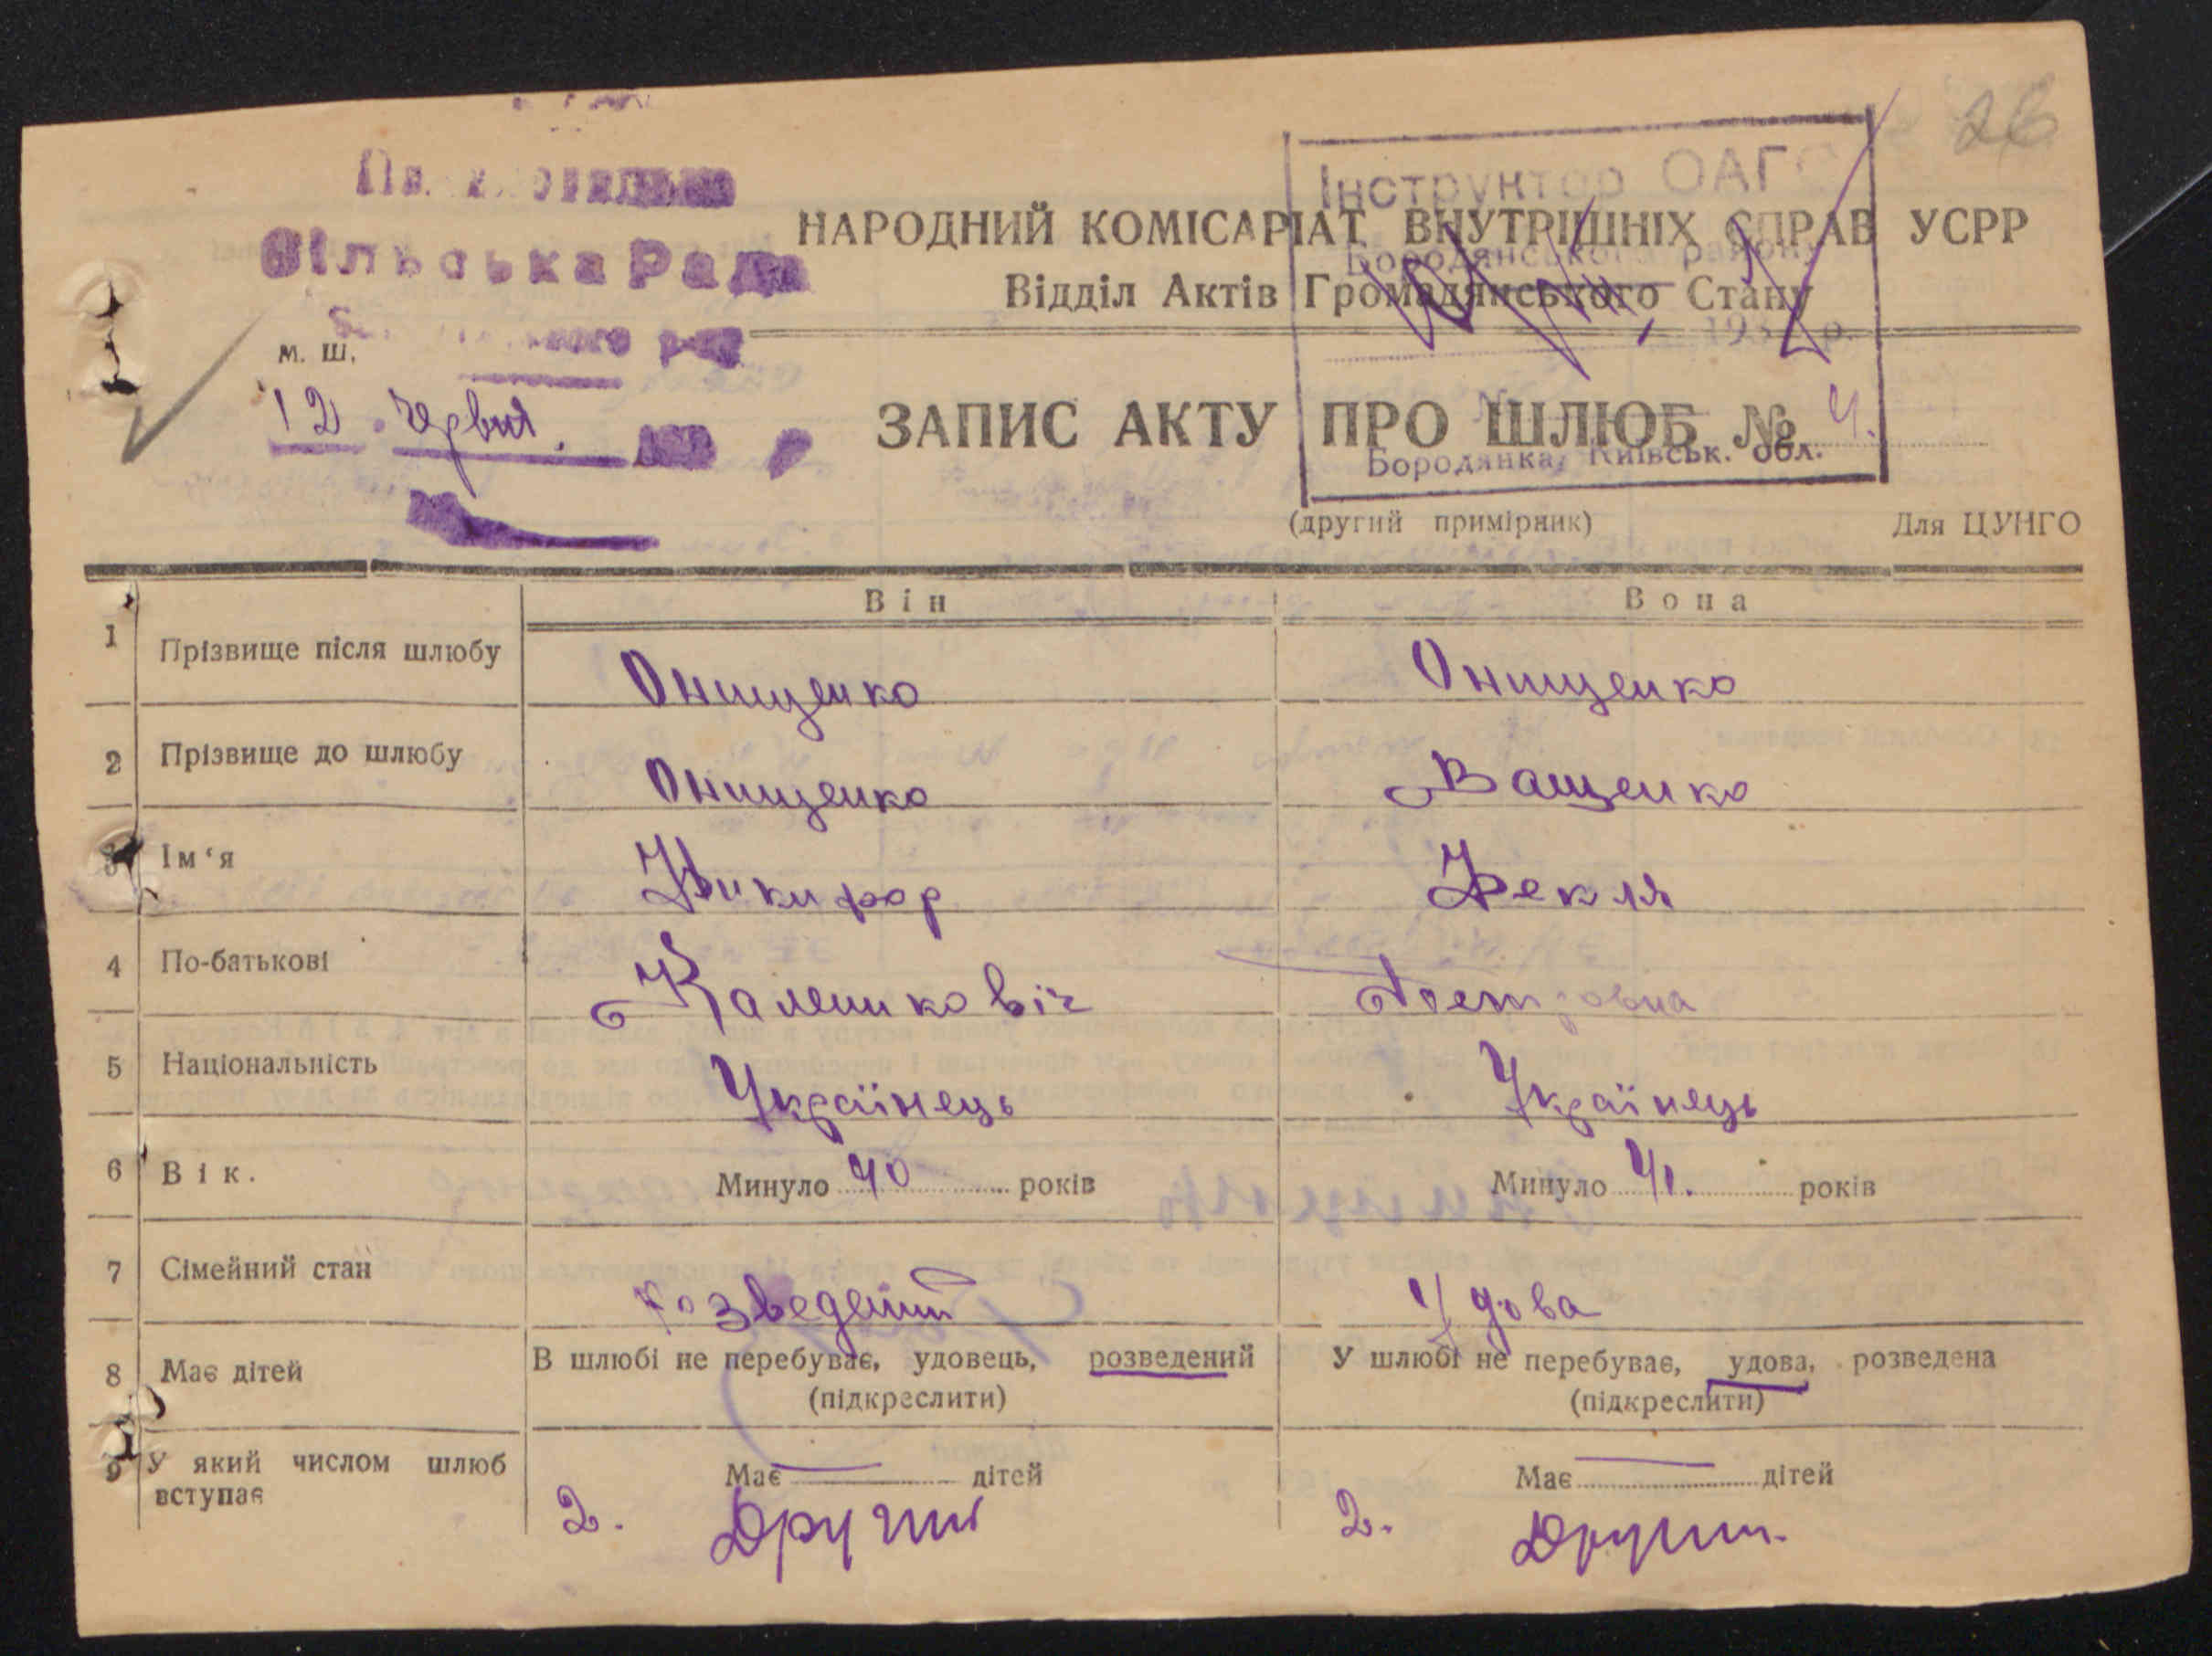 26
Сільська Рада
Інструктор ОАГС
НАРОДНИЙ КОМІСАРІАТ ВНУТРІШНІХ СПРАВ УСРР
Бородянського району
Відділ Актів Громадянського Стану
193 р.
м. ш.
12 червня
ЗАПИС АКТУ ПРО ШЛЮБ № 4.
Бородянка, Київськ. обл.
(другий примірник) Для ЦУНГО
Він Вона
1 Прізвище після шлюбу Онищенко Онищенко
2 Прізвище до шлюбу Онищенко Ващенко
3 Ім‘я Никифор Фекля
4 По-батькові Калениковіч Петровна
5 Національність Українець Українець
6 Вік. Минуло 40 років Минуло 41. років
7 Сімейний стан розведений Удова
8 Має дітей В шлюбі не перебуває, удовець, розведений У шлюбі не перебуває, удова, розведена
(підкреслити) (підкреслити)
9 У який числом шлюб вступає Має — дітей Має — дітей
2. Другий 2. Другий.